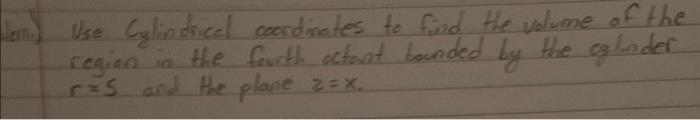 lem.) Use Cylindrical coordinates to find the volume of the
region in the fourth octant bounded by the cylinder
r=5 and the plane z=x.